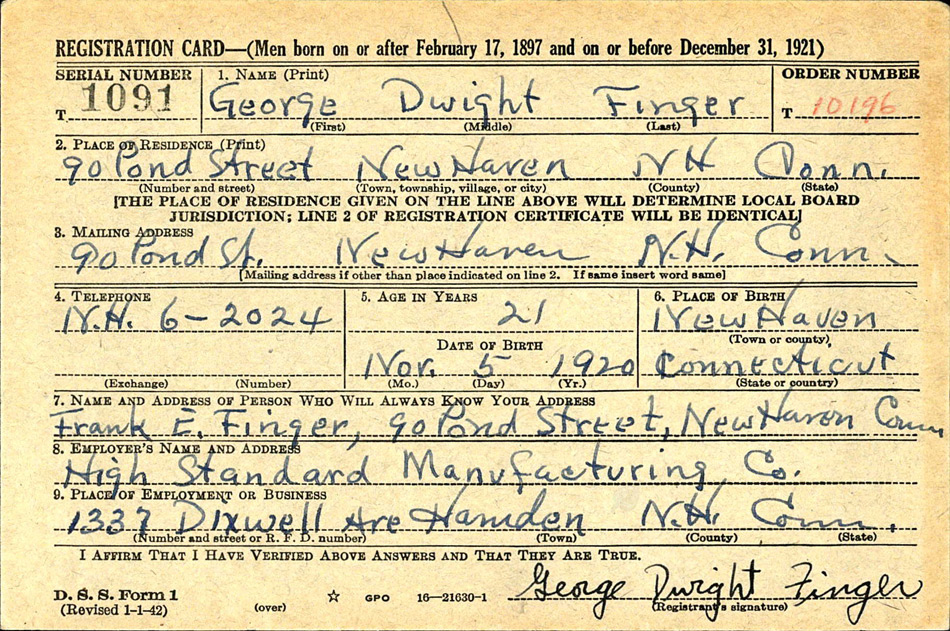 REGISTRATION CARD—(Men born on or after February 17, 1897 and on or before December 31, 1921)
SERIAL NUMBER 1. NAME (Print) ORDER NUMBER
T 1091 George Dwight Finger T 10196
(First) (Middle) (Last)
2. PLACE OF RESIDENCE (Print)
90 Pond Street New Haven NH Conn.
(Number and street) (Town, township, village, or city) (County) (State)
[THE PLACE OF RESIDENCE GIVEN ON THE LINE ABOVE WILL DETERMINE LOCAL BOARD
JURISDICTION; LINE 2 OF REGISTRATION CERTIFICATE WILL BE IDENTICAL]
3. MAILING ADDRESS
90 Pond St. New Haven N.H. Conn.
[Mailing address if other than place indicated on line 2. If same insert word same]
4. TELEPHONE 5. AGE IN YEARS 6. PLACE OF BIRTH
N.H. 6-2024 21 New Haven
DATE OF BIRTH (Town or county)
Nov. 5 1920 Connecticut
(Exchange) (Number) (Mo.) (Day) (Yr.) (State or country)
7. NAME AND ADDRESS OF PERSON WHO WILL ALWAYS KNOW YOUR ADDRESS
Frank E. Finger, 90 Pond Street, New Haven Conn
8. EMPLOYER'S NAME AND ADDRESS
High Standard Manufacturing Co.
9. PLACE OF EMPLOYMENT OR BUSINESS
1337 Dixwell Ave Hamden N.H. Conn.
(Number and street or R. F. D. number) (Town) (County) (State)
I AFFIRM THAT I HAVE VERIFIED ABOVE ANSWERS AND THAT THEY ARE TRUE.
George Dwight Finger
D. S. S. Form 1
(Revised 1-1-42) (over) ☆ GPO 16—21630-1 (Registrant's signature)